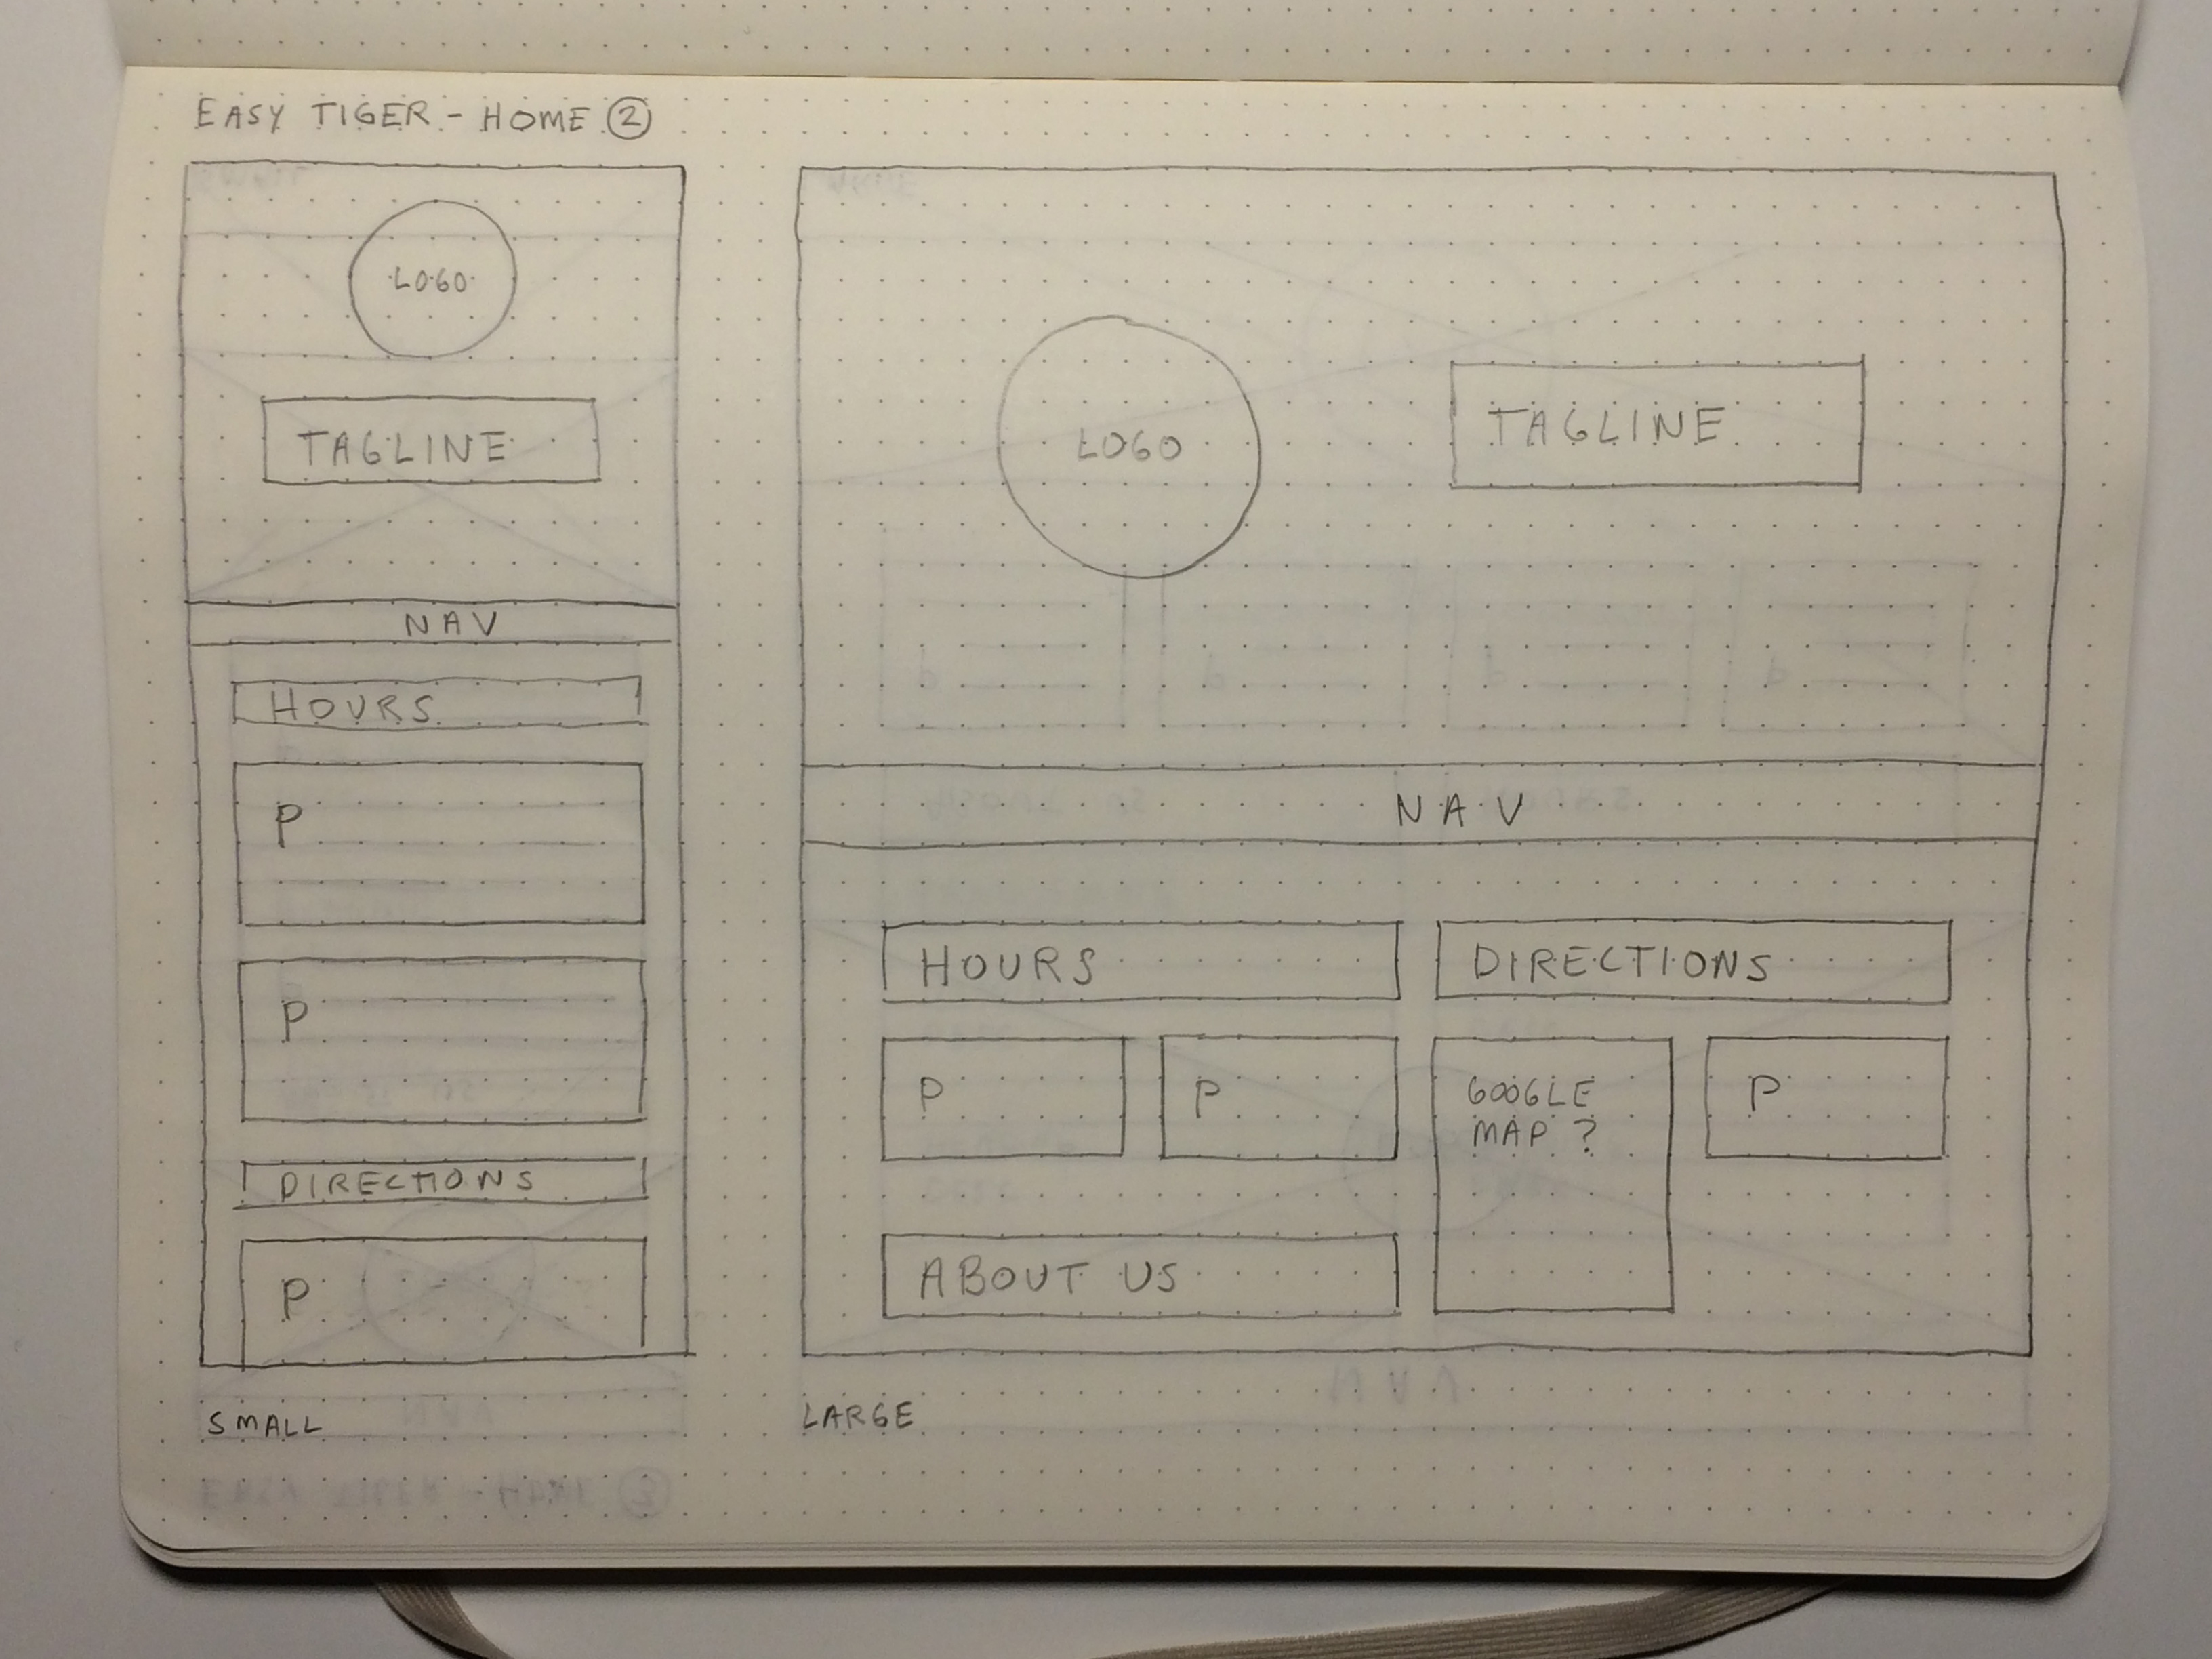 EASY TIGER - HOME ②
LOGO
TAGLINE
NAV
HOURS
P
P
DIRECTIONS
P
SMALL
LOGO
TAGLINE
NAV
HOURS
DIRECTIONS
P
P
GOOGLE
MAP ?
P
ABOUT US
LARGE